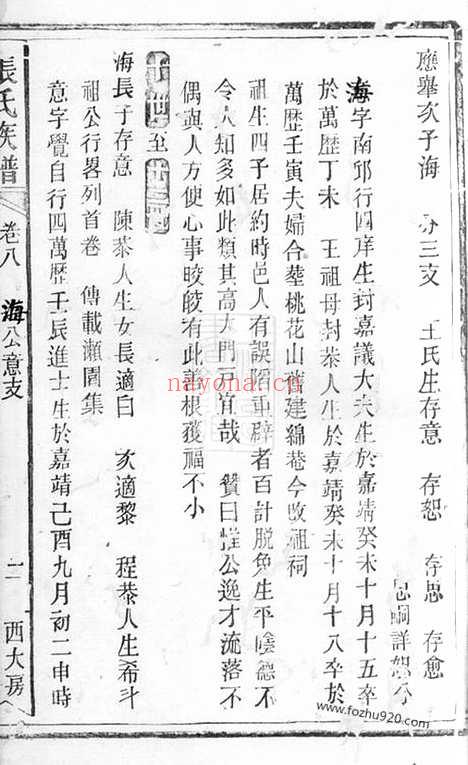 應舉次子海 分三支 王氏生存意 存恕 存思 存愈
思嗣詳恕分
海字南邱行四庠生封嘉議大夫生於嘉靖癸未十月十五卒
於萬歷丁未 王祖母封恭人生於嘉靖癸未十月十八卒於
萬歷壬寅夫婦合塟桃花山 建綿菴今改祖祠
祖生四子居約時邑人有誤陷重辟者百計脫免生平陰德不
令人知多如此類其高大門戶宜哉 贊曰惟公逸才流落不
偶與人方便心事晈皎有此善根獲福不小
世至 世
海長子存意 陳恭人生女長適白 次適黎 程恭人生希斗
祖公行畧列首卷 傳載瀨園集
意字覺自行四萬歷壬辰進士生於嘉靖己酉九月初二申時
張氏族譜 卷八 海公意支 二 西大房
nayona.cn
www.fozhu920.com